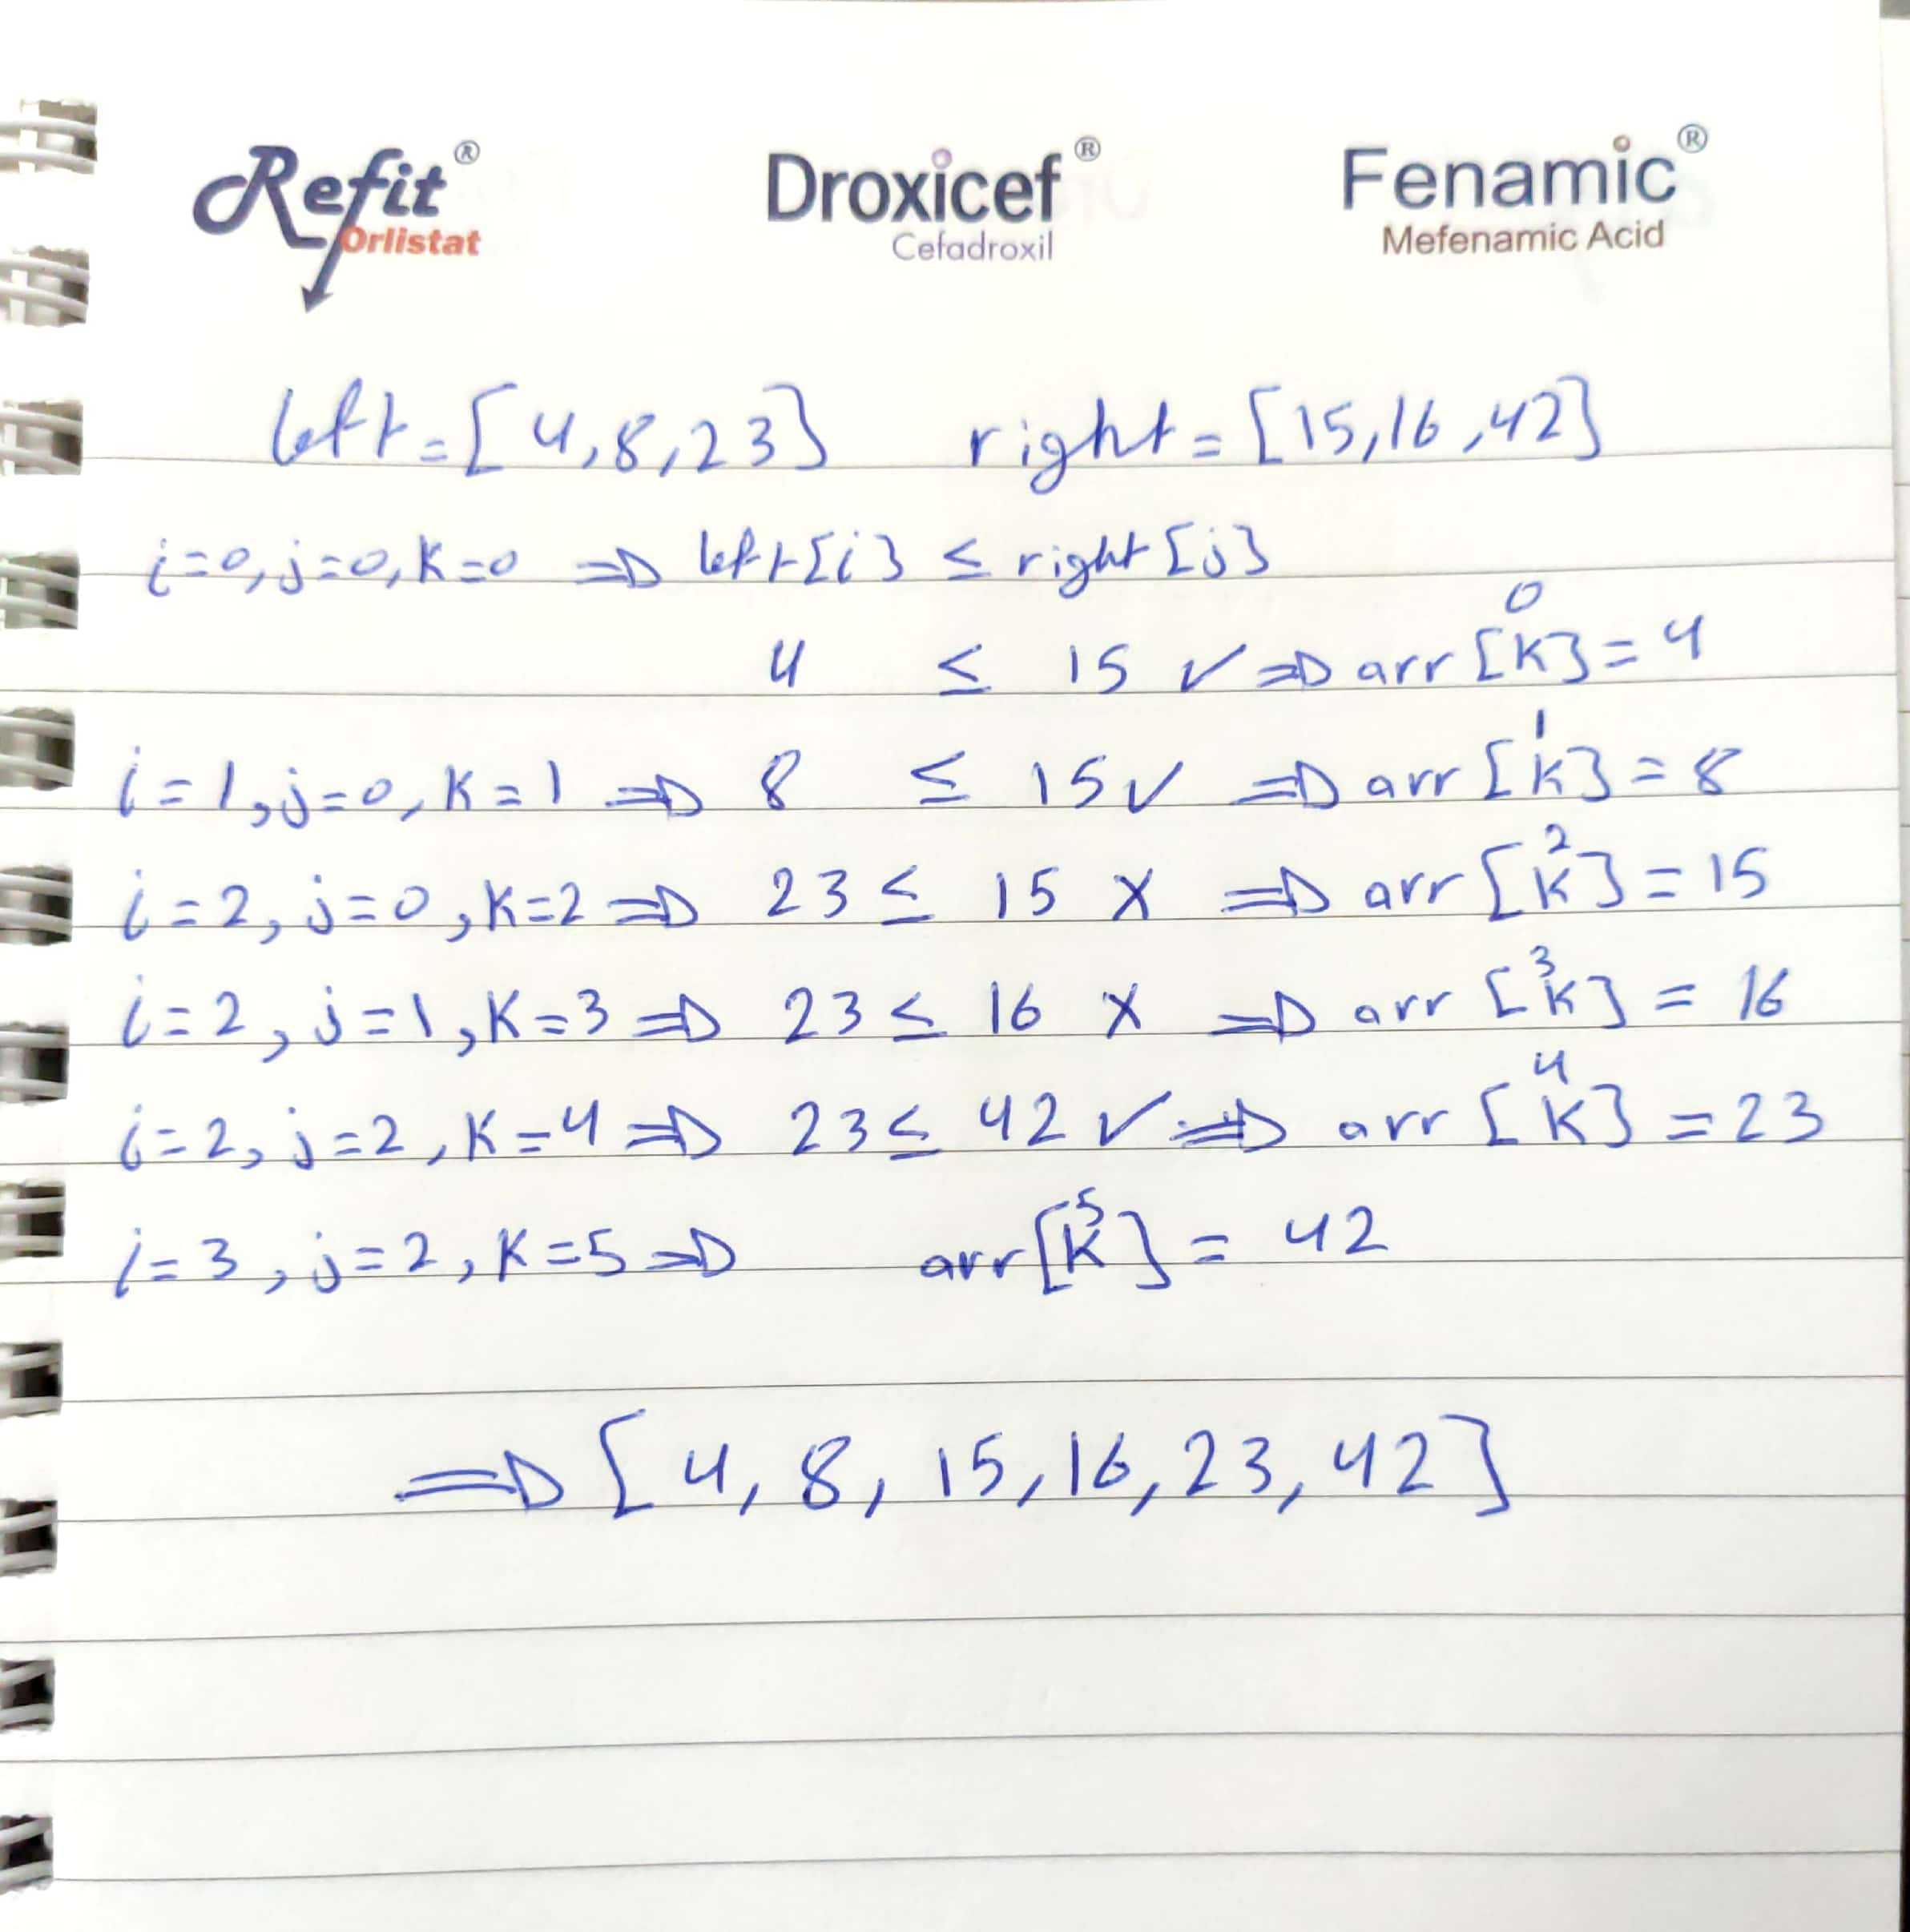 Refit® Droxicef® Fenamic®
Orlistat Cefadroxil Mefenamic Acid
left = [4,8,23] right = [15,16,42]
i=0, j=0, K=0 ⇒ left[i] ≤ right[j]
0
4 ≤ 15 ✓ ⇒ arr [K] = 4
1
i=1, j=0, K=1 ⇒ 8 ≤ 15 ✓ ⇒ arr [K] = 8
2
i=2, j=0, K=2 ⇒ 23 ≤ 15 X ⇒ arr [K] = 15
3
i=2, j=1, K=3 ⇒ 23 ≤ 16 X ⇒ arr [K] = 16
4
i=2, j=2, K=4 ⇒ 23 ≤ 42 ✓ ⇒ arr [K] = 23
5
i=3, j=2, K=5 ⇒ arr[K] = 42
⇒ [4, 8, 15, 16, 23, 42]